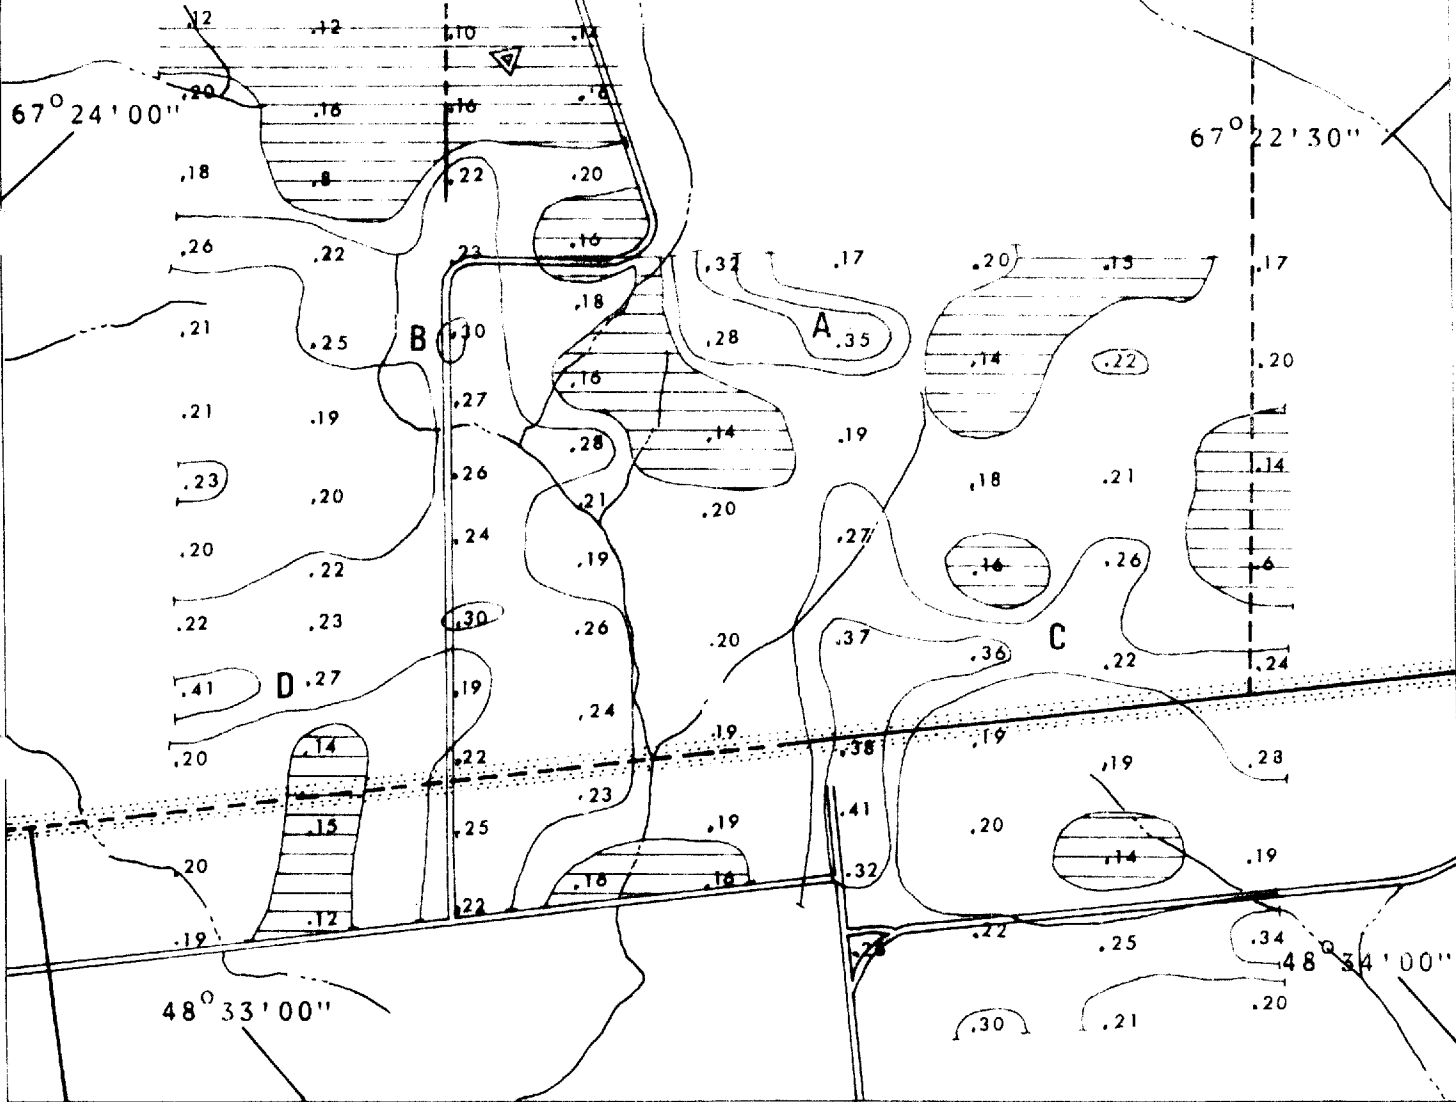 .12 .12 .10 .14
.20 .16 .16 .16
67° 24' 00"
67° 22' 30"
.18 .8 .22 .20
.26 .22 .23 .16 .32 .17 .20 .15 .17
.21 .25 B .30 .18 .28 A .35 .14 .22 .20
.21 .19 .27 .16 .14 .19
.23 .20 .26 .28 .20 .18 .21 .14
.20 .22 .24 .21 .27
.19 .16 .26 .6
.22 .23 .30 .26 .20 .37 .36 C .22 .24
.41 D .27 .19 .24 .19
.20 .14 .22 .38 .19 .19 .23
.15 .25 .23 .19 .41 .20 .14 .19
.20 .16 .16 .32
.19 .12 .22 .23 .22 .25 .34
48° 33' 00"
48° 34' 00"
.30 .21 .20